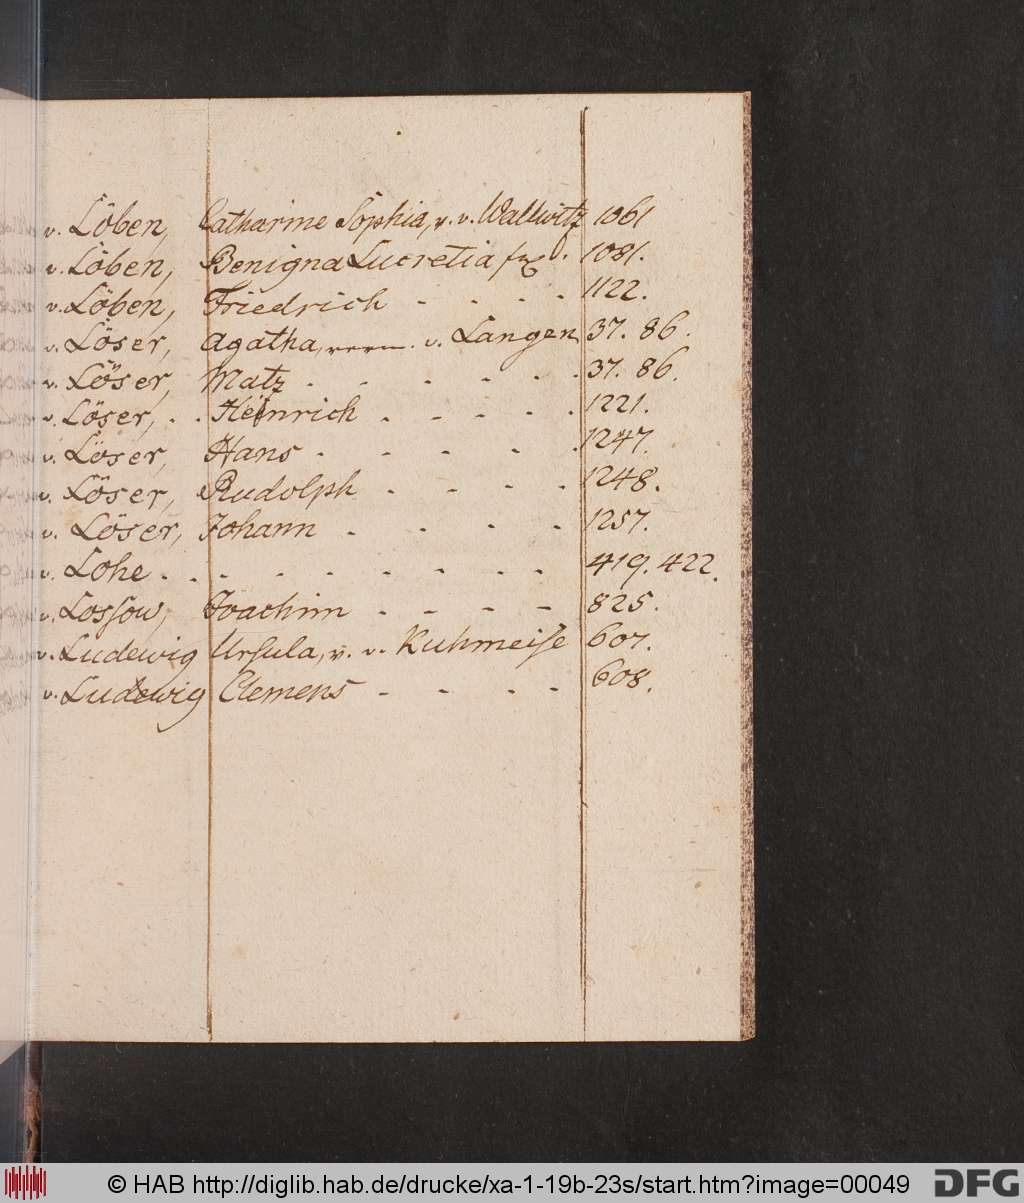 v. Löben, Catharine Sophia, v. v. Wallwitz 1061
v. Löben, Benigna Lucretia 1081.
v. Löben, Friedrich - - - - 1122.
v. Löser, Agatha, verm. v. Langen 37. 86.
v. Löser, Matz - - - - - - 37. 86.
v. Löser, . . Heinrich - - - - 1221.
v. Löser, Hans - - - - - 1247.
v. Löser, Rudolph - - - - 1248.
v. Löser, Johann - - - - 1257.
v. Lohe . . - - - - - - - 419. 422.
v. Lossow, Joachim - - - - 825.
v. Ludewig Ursula, v. v. Kuhmeise 607.
v. Ludewig Clemens - - - - 608.
© HAB http://diglib.hab.de/drucke/xa-1-19b-23s/start.htm?image=00049 DFG